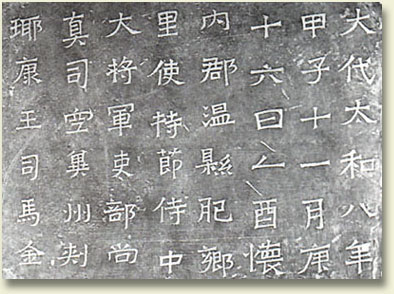 大代大和八年
甲子十一月庚
十六日乙酉懷
内郡溫縣肥鄉
里使持節侍中
大將軍吏部尚
真司空冀州刺
瑘康王司馬金